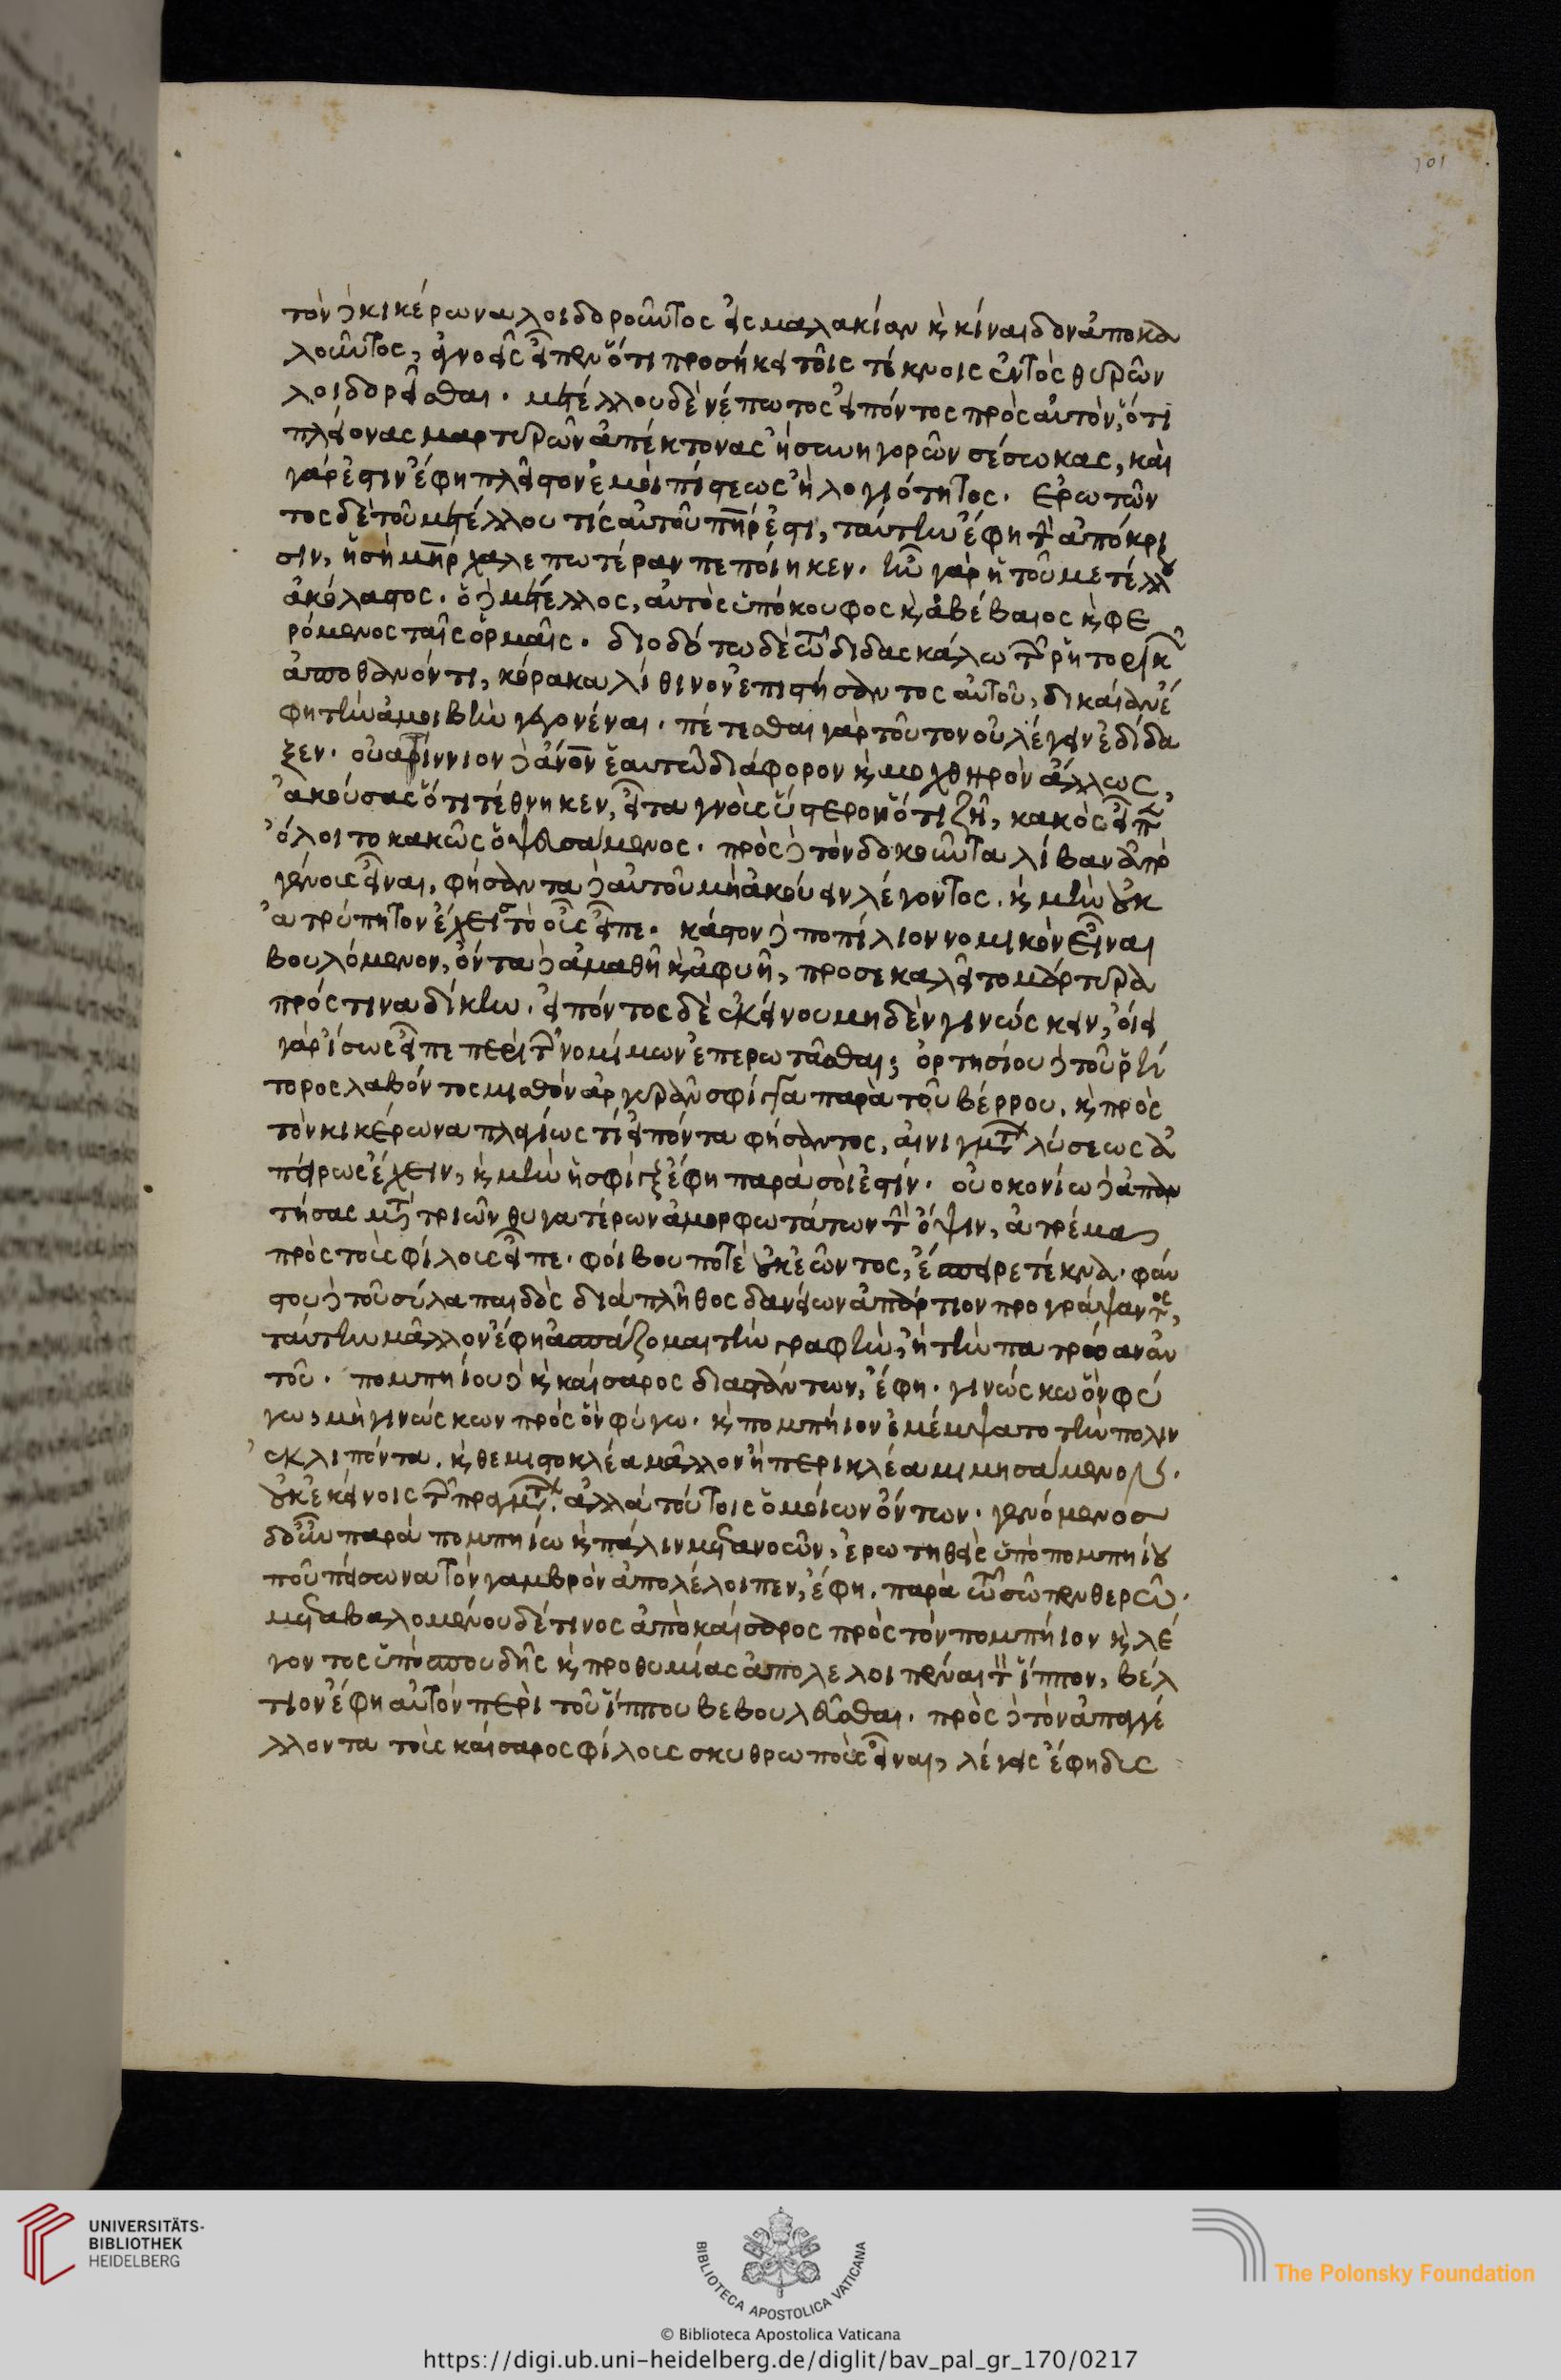 101
τὸν δὲ κικέρωνα λοιδοροῦντος εἰς μαλακίαν κ̀ κίναιδον ἀποκα
λοῦντος, ἀγνοεῖς εἶπεν ὅτι προσήκει τοῖς τέκνοις ἐντὸς θυρῶν
λοιδορεῖσθαι. μετέλλου δὲ νέπωτος εἰπόντος πρὸς αὐτὸν, ὅτι
πλείονας μαρτυρῶν ἀπέκτονας ἢ συνηγορῶν σέσωκας, καὶ
γάρ ἐστιν ἔφη πλεῖστον ἐμοὶ πίστεως ἢ λογιότητος. Ερωτῶν
τος δὲ τοῦ μετέλλου τίς αὐτοῦ πη̅ρ ἐστι, ταύτην ἔφη τ̀ ἀπόκρι
σιν, ἡ σὴ μη̅ρ χαλεπωτέραν πεποίηκεν. ἦν γὰρ ἡ τοῦ μετέλλου
ἀκόλαστος. ὁ δὲ μετέλλος, αὐτὸς ὑπόκουφος κ̀ ἀβέβαιος κ̀ φε
ρόμενος ταῖς ὁρμαῖς. διοδότω δὲ τῶ διδασκάλω τῶν ῥητορικῶν
ἀποθανόντι, κόρακα λίθινον ἐπιστήσαντος αὐτοῦ, δικαίαν ἔ
φη τὴν ἀμοιβὴν γεγονέναι. πέτεσθαι γὰρ τοῦτον οὐ λέγειν ἐδίδα
ξεν. οὐατίννιον δὲ ἄνο̅ν ἑαυτῶ διάφορον κ̀ μοχθηρὸν ἄλλως,
ἀκούσας ὅτι τέθνηκεν, εἶτα γνοὺς ὕστερον ὅτι ζῆ, κακὸς εἶπε
ὄλοιτο κακῶς ὁ ψευσάμενος. πρὸς δὲ τὸν δοκοῦντα λίβαν ἀπὸ
γένους εἶναι, φήσαντα δὲ αὐτοῦ μὴ ἀκούειν λέγοντος. κ̀ μὴν οὐκ
ἀτρύπητον ἔχεις τὸ οὖς εἶπε. κάστον δὲ ποπίλιον νομικὸν εἶναι
βουλόμενον, ὄντα δὲ ἀμαθῆ κ̀ ἀφυῆ, προσεκαλεῖτο μάρτυρα
πρός τινα δίκην. εἰπόντος δὲ ἐκείνου μηδὲν γινώσκειν, οἴει
γὰρ ἴσως εἶπε περὶ τῶν νομίμων ἐπερωτᾶσθαι; ὁρτησίου δὲ τοῦ ῥή
τορος λαβόντος μισθὸν ἀργυρᾶν σφίγγα παρὰ τοῦ βέρρου, κ̀ πρὸς
τὸν κικέρωνα πλαγίως τὶ εἰπόντα φήσαντος, αἰνιγμάτων λύσεως ἀ
πείρως ἔχειν, κ̀ μὴν ἡ σφίγξ ἔφη παρὰ σοὶ ἐστίν. οὐοκονίω δὲ ἀπαν
τήσας μετὰ τριῶν θυγατέρων ἀμορφωτάτων τ̀ ὄψιν, ἀτρέμα
πρὸς τοὺς φίλους εἶπε. φοίβου ποτὲ οὐκ ἐῶντος, ἔσπειρε τέκνα. φαύ
στου δὲ τοῦ σύλα παιδὸς διὰ πλῆθος δανείων ἀπάρτιον προγράψαντος,
ταύτην μᾶλλον ἔφη ἀσπάζομαι τὴν γραφὴν, ἢ τὴν πατρῴαν αὐ
τοῦ. πομπηίου δὲ κ̀ καίσαρος διαστάντων, ἔφη. γινώσκω ὃν φεύ
γω, μὴ γινώσκων πρὸς ὃν φύγω. κ̀ πομπήιον ἐμέμψατο τὴν πόλιν
ἐκλιπόντα. κ̀ θεμιστοκλέα μᾶλλον ἢ περικλέα μιμησάμενος.
οὐκ ἐκείνοις τῶν πραγμάτων, ἀλλὰ τούτοις ὁμοίων ὄντων. γενόμενος
δ' οὖν παρὰ πομπηίω κ̀ πάλιν μετανοῶν, ἐρωτηθεὶς ὑπὸ πομπηίου
ποῦ πείσωνα τὸν γαμβρὸν ἀπολέλοιπεν, ἔφη. παρὰ τῶ σῶ πενθερῶ.
μεταβαλομένου δέ τινος ἀπὸ καίσαρος πρὸς τὸν πομπήιον κ̀ λέ
γοντος ὑπὸ σπουδῆς κ̀ προθυμίας ἀπολελοιπέναι τ̀ ἵππον, βέλ
τιον ἔφη αὐτὸν περὶ τοῦ ἵππου βεβουλεῦσθαι. πρὸς δὲ τὸν ἀπαγγέ
λλοντα τοὺς καίσαρος φίλους σκυθρωποὺς εἶναι, λέγεις ἔφη δυς
UNIVERSITÄTS-
BIBLIOTHEK
HEIDELBERG
BIBLIOTECA APOSTOLICA VATICANA
© Biblioteca Apostolica Vaticana
The Polonsky Foundation
https://digi.ub.uni-heidelberg.de/diglit/bav_pal_gr_170/0217